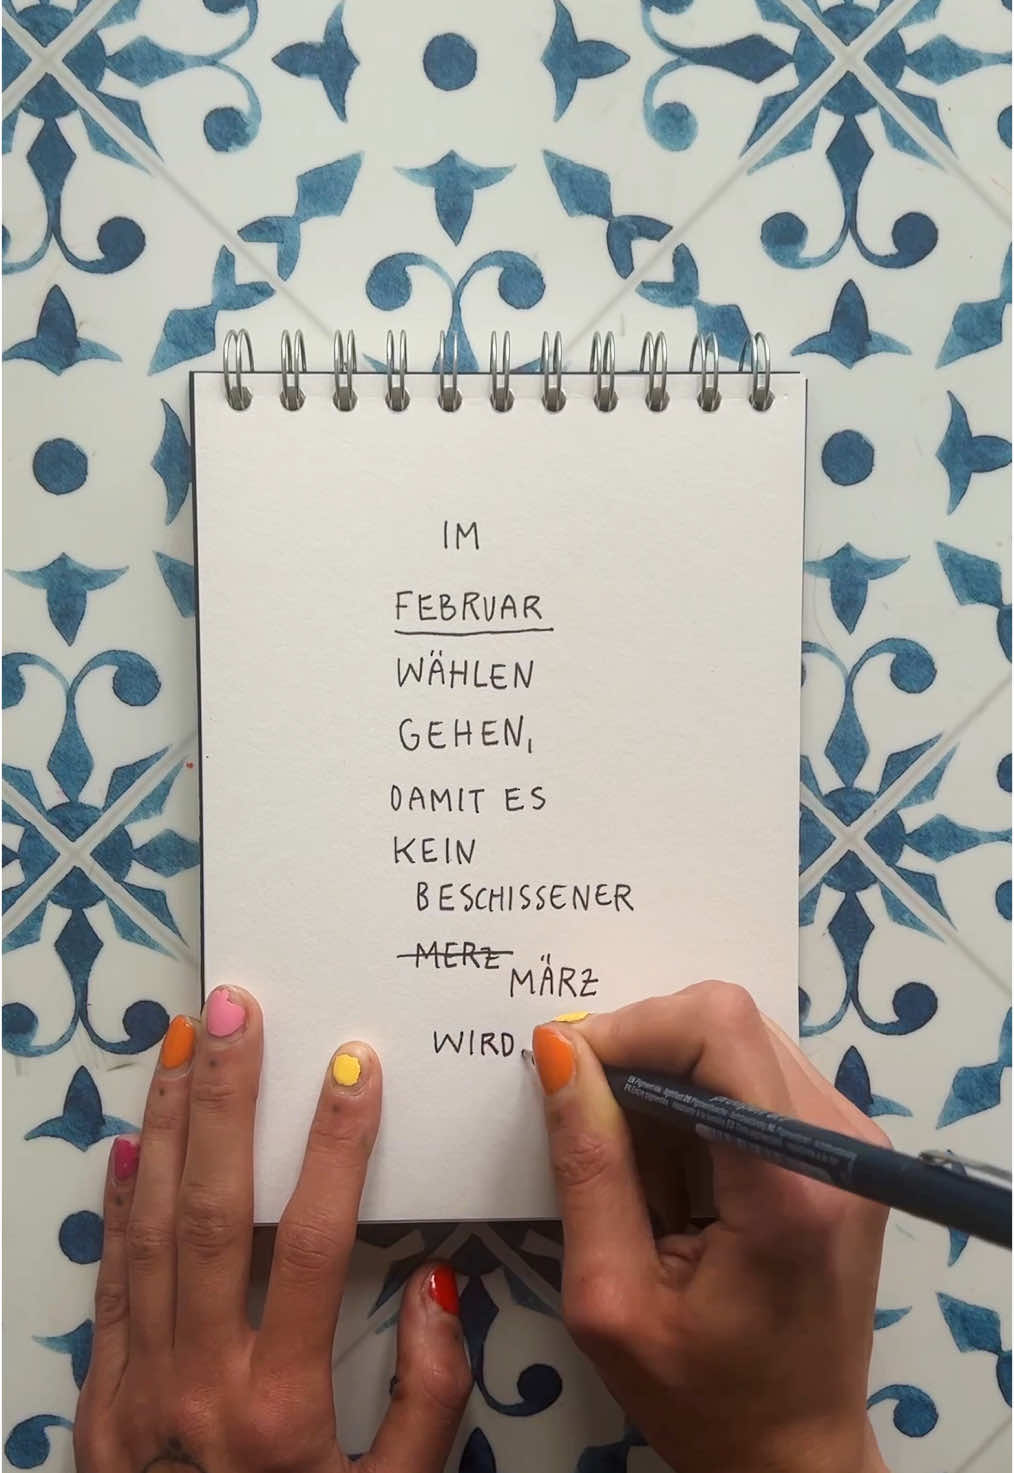 IM
FEBRUAR
WÄHLEN
GEHEN,
DAMIT ES
KEIN
BESCHISSENER
MERZ
MÄRZ
WIRD.